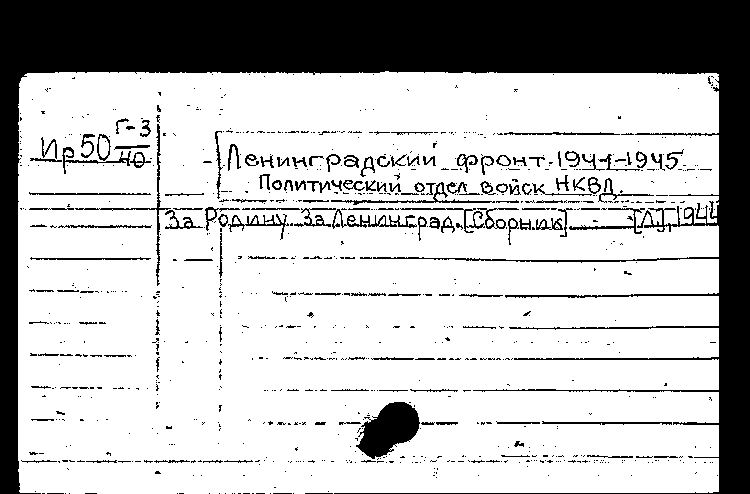 Ир50 Г-3/40
Ленинградский фронт. 1941-1945
Политический отдел войск НКВД.
За Родину. За Ленинград. [Сборник]. - [Л], 1944